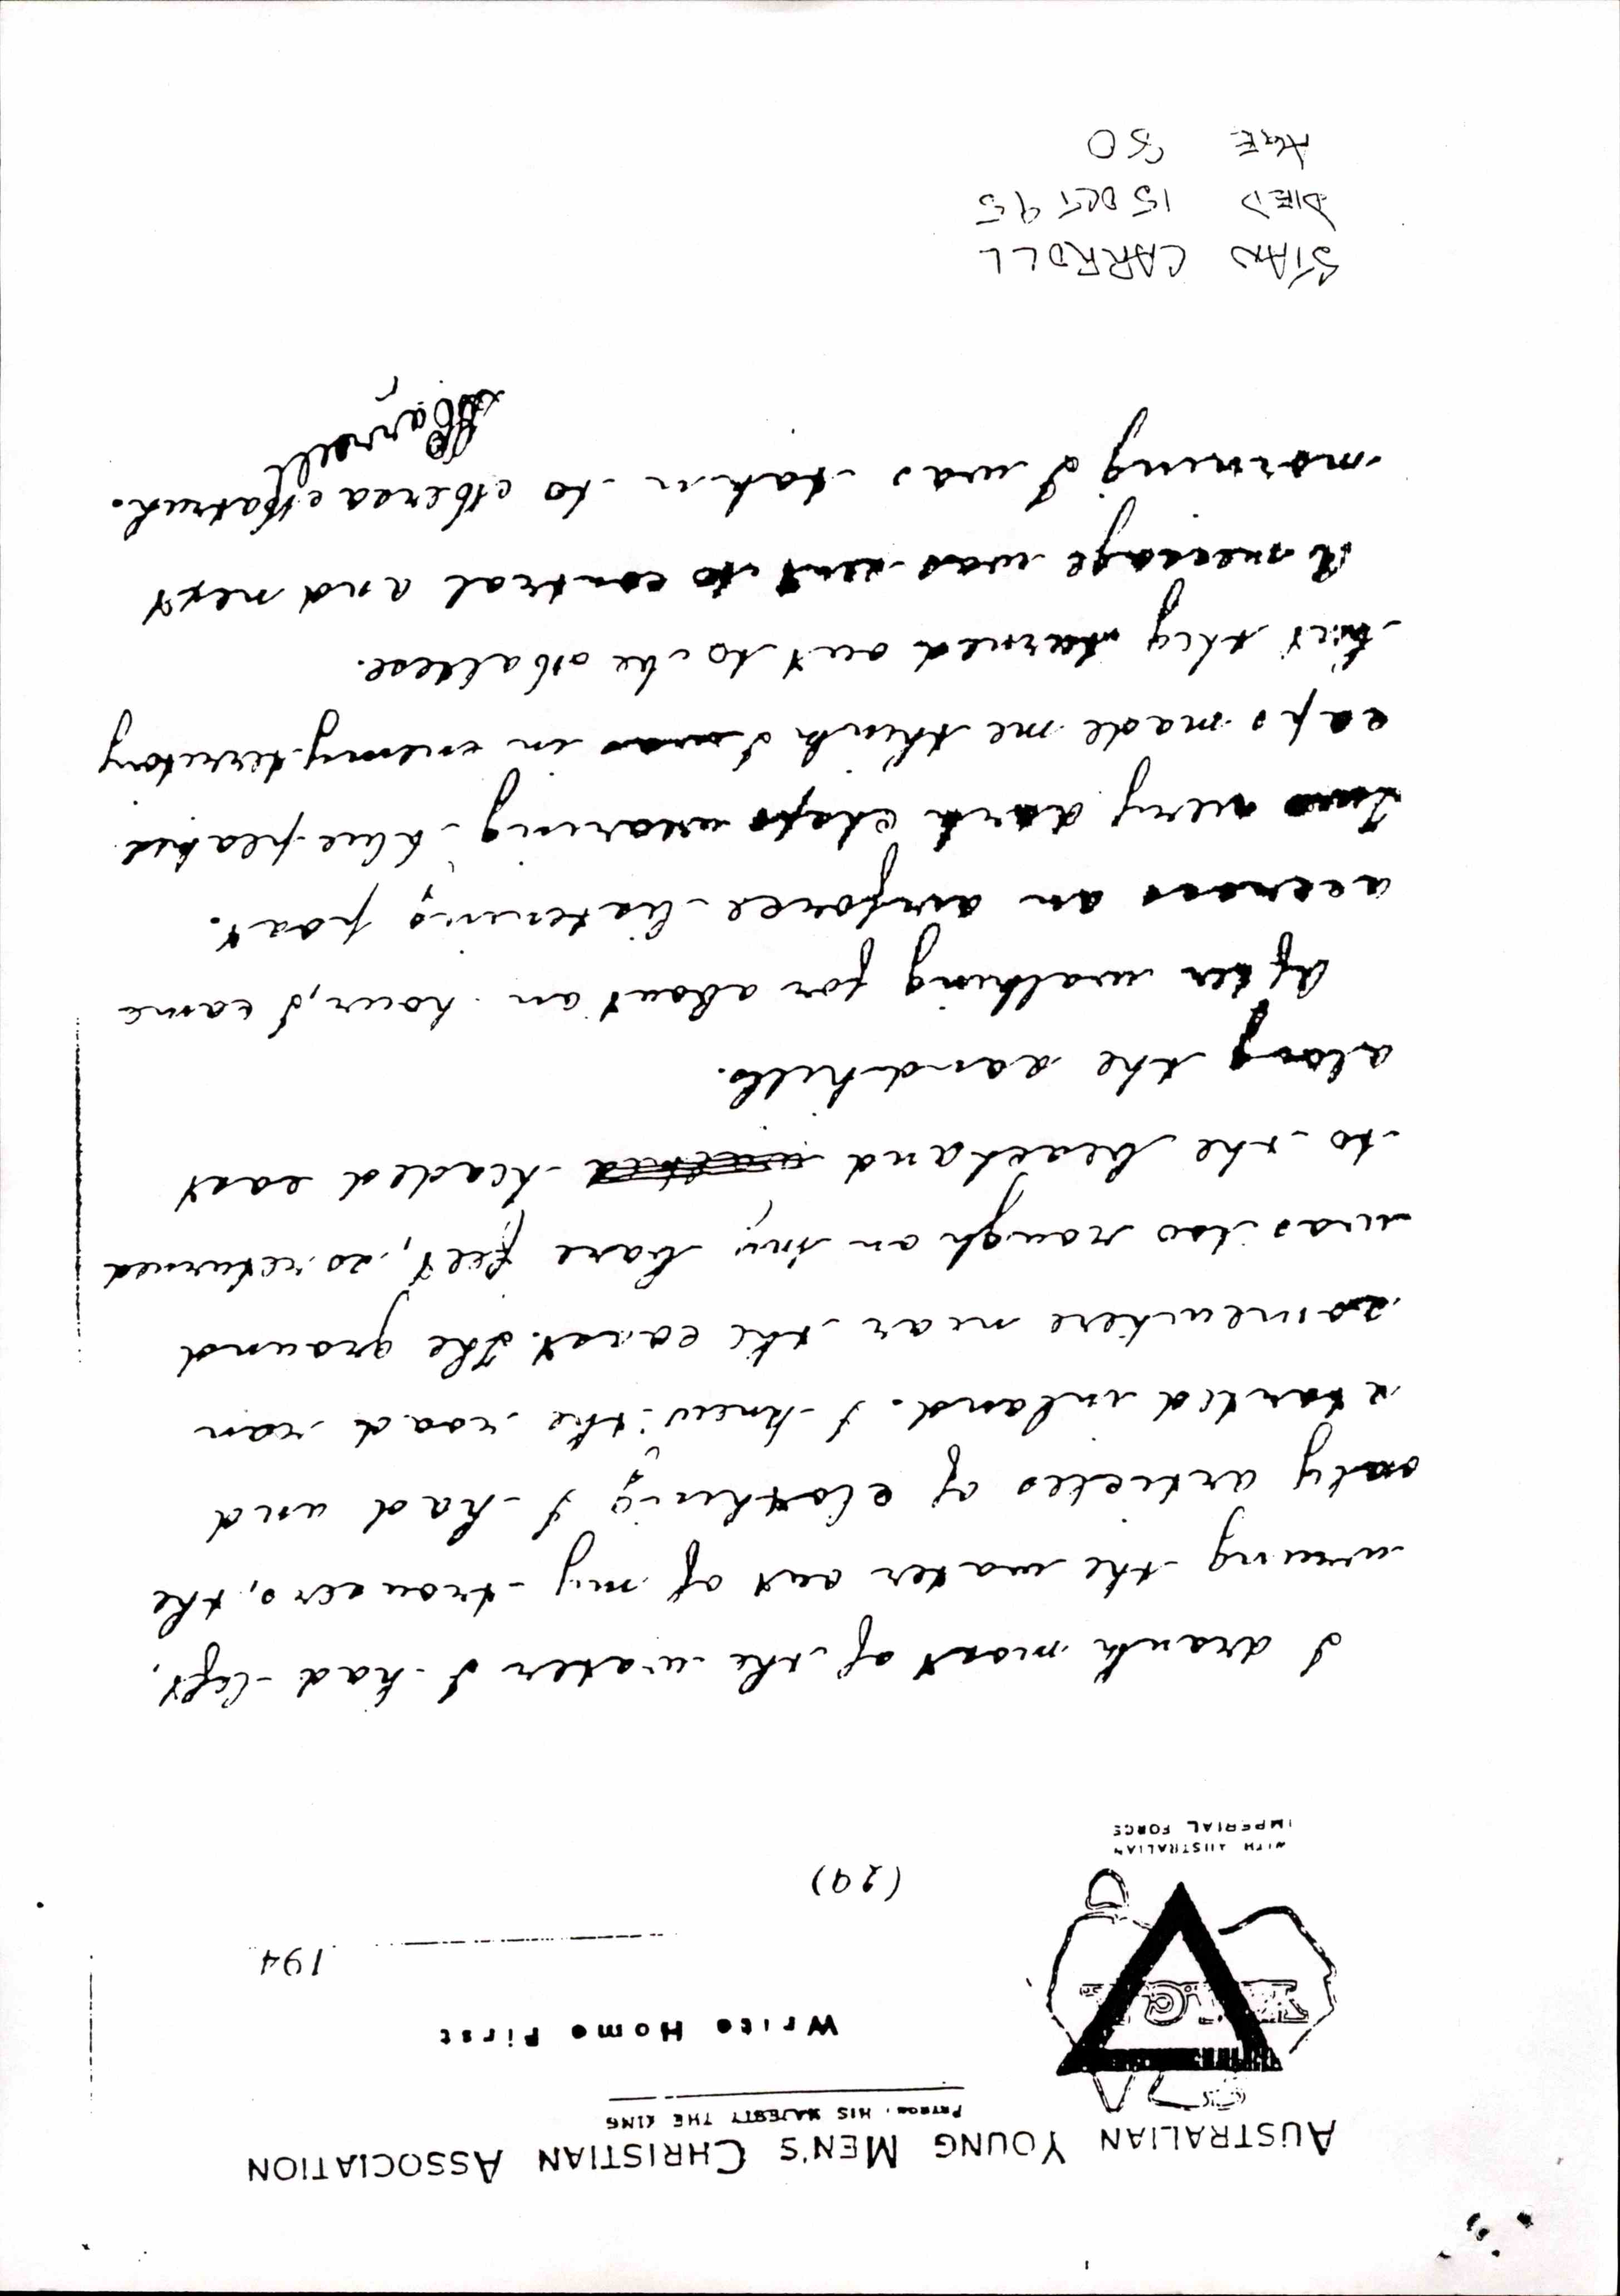 AUSTRALIAN YOUNG MEN'S CHRISTIAN ASSOCIATION
PATRON: HIS MAJESTY THE KING
Write Home First
194
(29)
WITH AUSTRALIAN
IMPERIAL FORCE
I drank most of the water I had left,
wrung the water out of my trousers, the
only articles of clothing I had and
started inland. I knew the road ran
somewhere near the coast. The ground
was too rough on my bare feet, so returned
to the beach and headed east
along the sandhills.
After walking for about an hour, I came
across an airforce listening post.
Two very dark chaps wearing blue peaked
caps made me think I was in enemy territory
but they turned out to be Maltese.
A message was sent to control and next
morning I was taken to Mersa Matruh.
SCarroll
STAN CARROLL
DIED 15 OCT 95
AGE 80